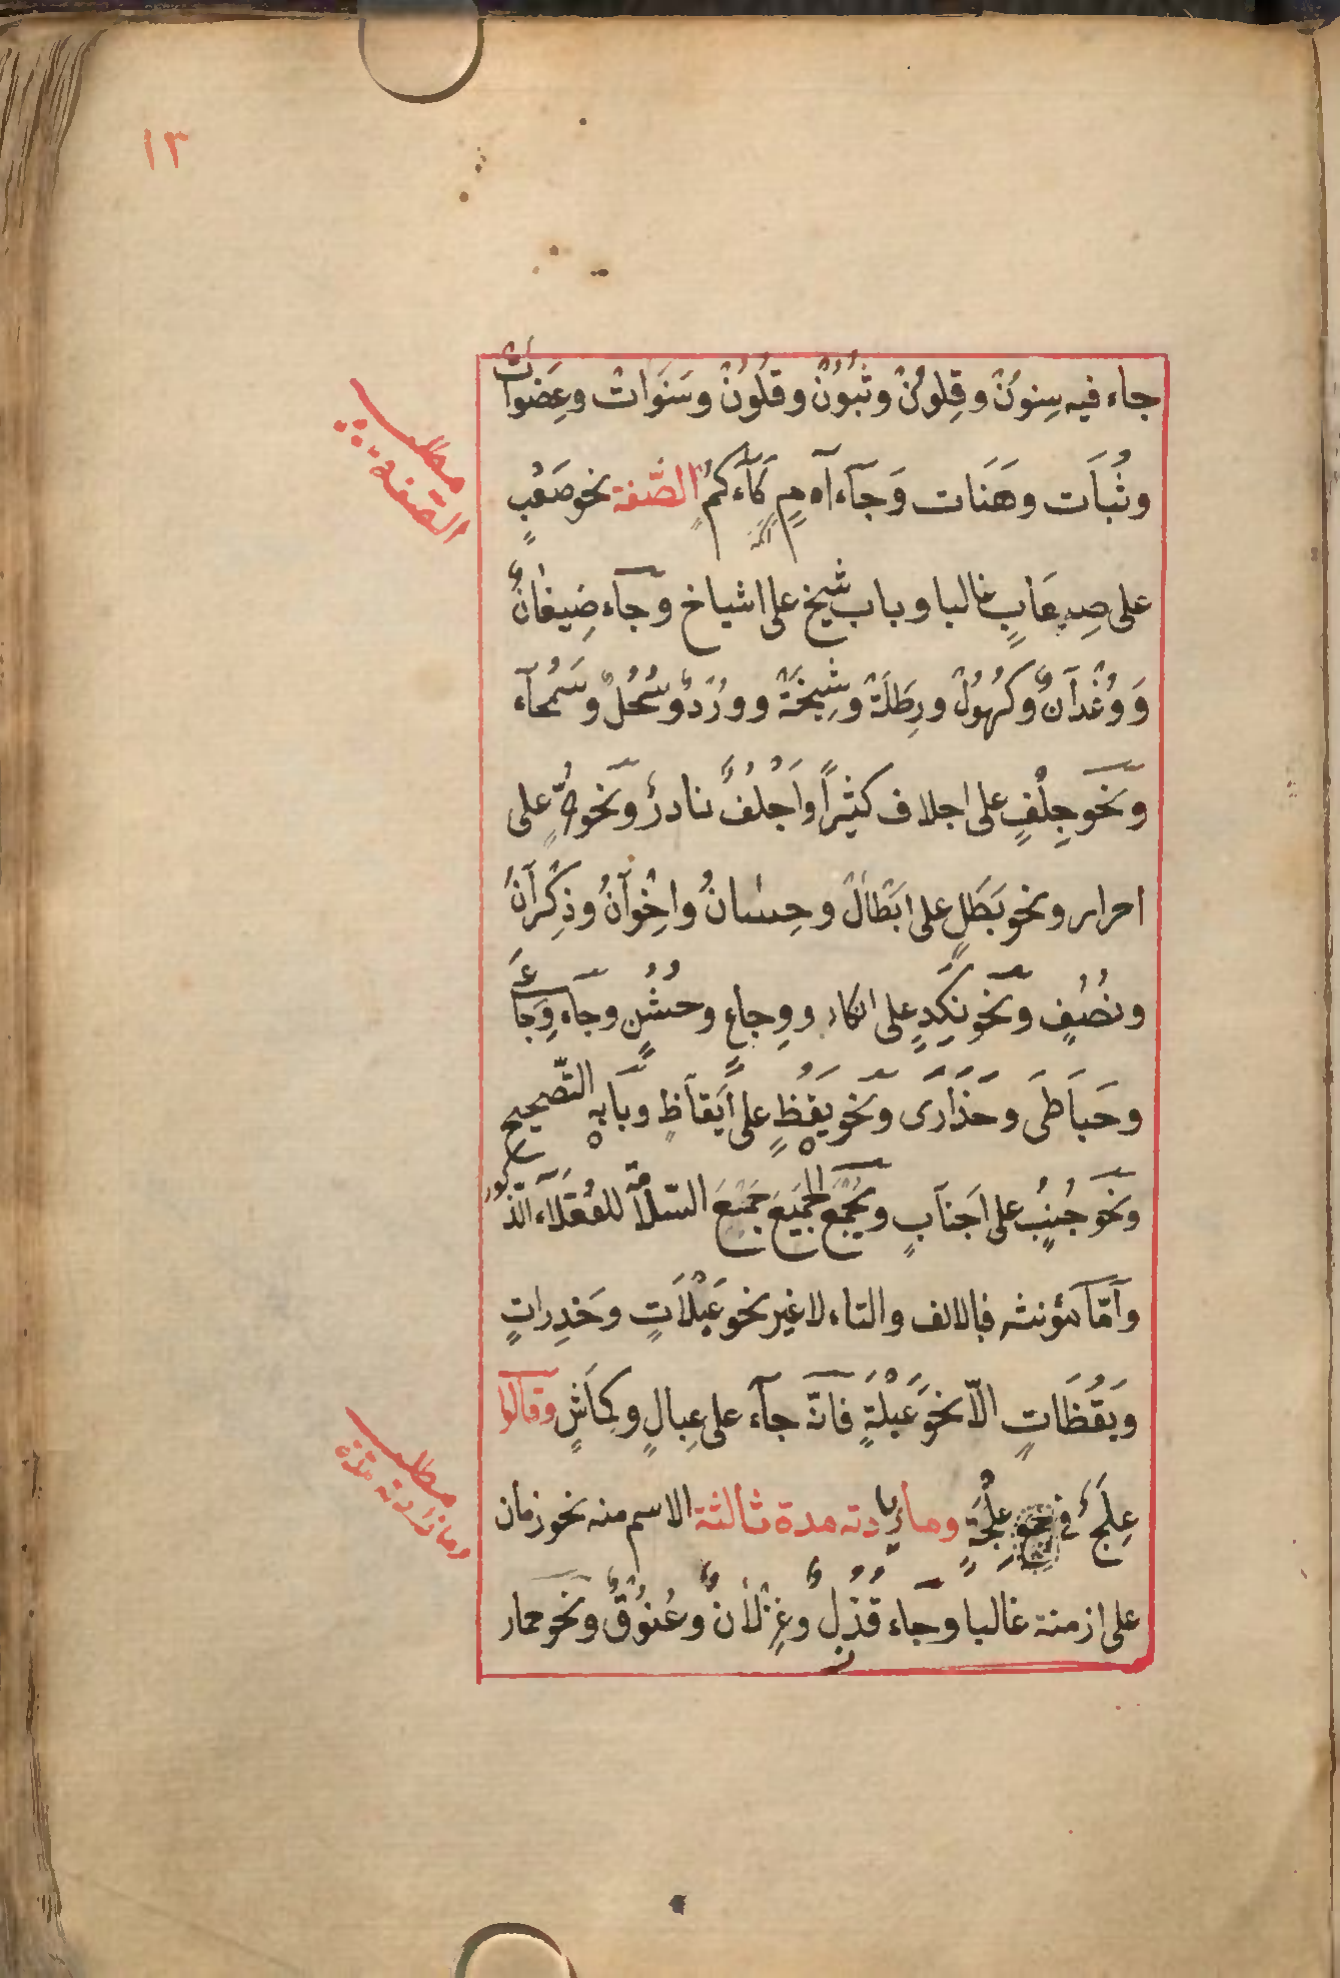 ١٣
جاء فيه سِنوُنْ وقِلوُنْ وثُبُونْ وقُلُونْ وسَنَوَاتْ وعِضَوات
مطلب
الصّفة
وثُبَات وهَنَات وَجَآء آمٍ كَآءكمٍ الصّفة نحو صَعْبٍ
على صِعَابٍ غالبا وباب شيخ على اشياخ وجآء ضِيفانٌ
وَوُغْدَانٌ وكُهُولٌ ورِطَلَةٌ وشِيخَةٌ ووُرْدٌ وسُحُلٌ وسُمَحآء
ونَحَو جِلْفٍ على اجلاف كثيراً واَجْلُفٌ نادرٌ ونحو حُرٍّ على
احرار ونحو بَطَلٍ على اَبْطَالٌ وحِسَانٌ واِخْوَانٌ وذُكْرَانٌ
ونُصُفٍ ونَحو نَكِدٍ على انكاد ووِجاعٍ وخُشُنٍ وجَآء وَجَاعَى
وحَبَاطَى وحَذَارَى ونَحو يَقُظٍ على اَيْقَاظٍ وبَابه التّصحيح
ونَحَو جُنُبٍ على اَجنَابٍ ويُجْمَع الجَمِيَع جَمْعَ السّلامة للعُقَلَآء الذّكور
وَاَمّا مؤنثه فبالالف والتاء لا غير نحو عَبْلَاتٍ وحَذِراتٍ
ويَقُظَاتٍ الاّ نَحوَ عَبْلَةٍ فانّه جآء على عِبالٍ وكِمَاشٍ وقالوا
مطلب
وما زيادته مدّة
عِلَجٌ فى نحو عِلْجَةٍ وما زيادته مدة ثالثة الاسم منه نحو زمان
على ازمنة غالبا وجَاء قُذُلٌ وغِزْلَانٌ وعُنوُقٌ ونَحَو حمار